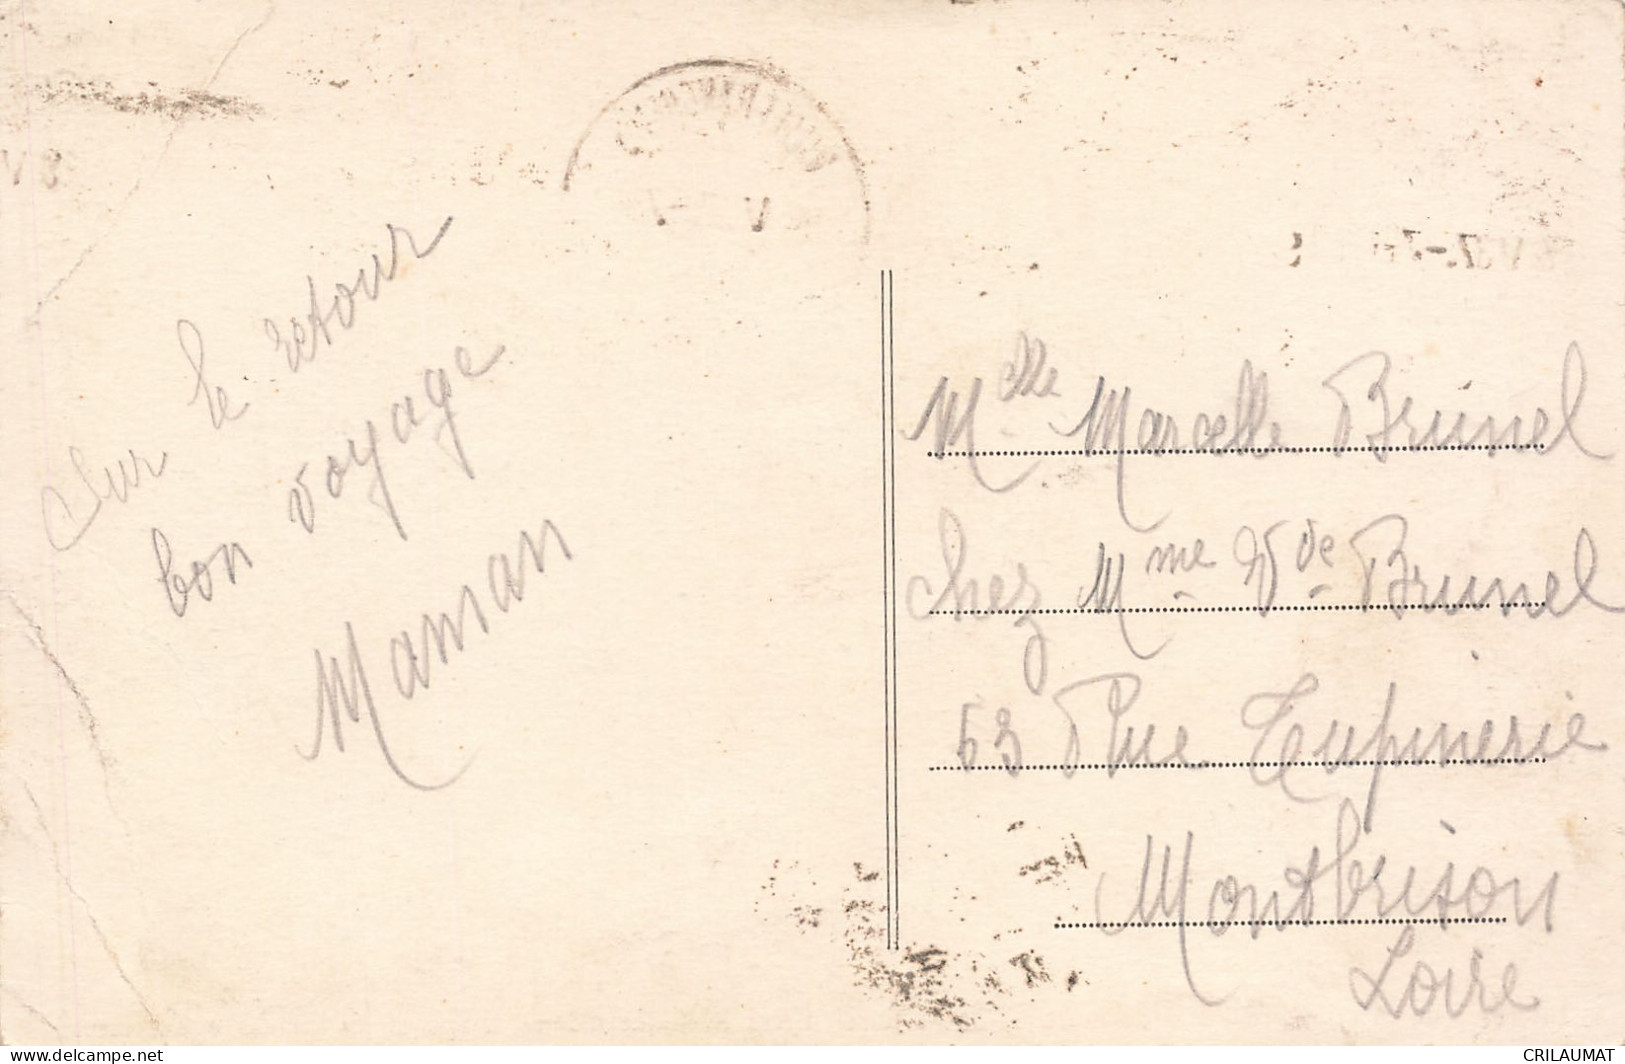 Sur le retour
bon voyage
Maman
Mlle Marcelle Brunel
Chez Mme Vve Brunel
63 Rue Tupinerie
Montbrison
Loire
delcampe.net
CRILAUMAT